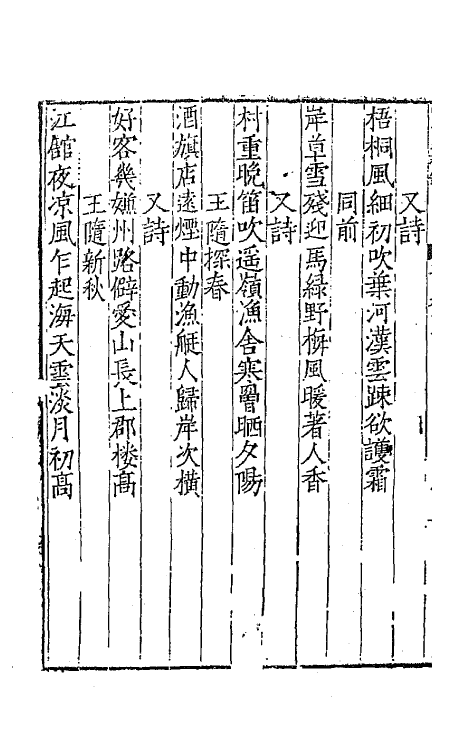 又詩
梧桐風細初吹葉河漢雲踈欲護霜
同前
岸草雪殘迎馬緑野梅風暖著人香
又詩
村重晚笛吹遥嶺漁舎寒罾晒夕陽
王隨探春
酒旗店遠煙中動漁艇人歸岸次橫
又詩
好客幾嫌州路僻愛山長上郡楼高
王隨新秋
江館夜凉風乍起海天雲淡月初高